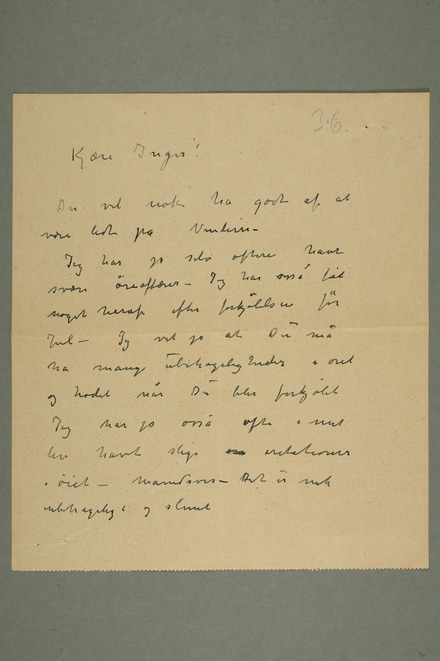 3.6.
Kjære Inger!
Du vil nok ha godt af at
være lidt på Vinderen –
Jeg har jo selv oftere havt
svære øreaffærer – Jeg har også fåt
noget heraf efter forkjölelsen för
Jul – Jeg vet jo at Du må
ha mange übehageligheder i öret
og hodet når Du blir forkjölet
Jeg har jo også ofte i mit
liv havt slige irritationer
i öiet – manedsvis – Det er nok
ubehagelig i og slemt